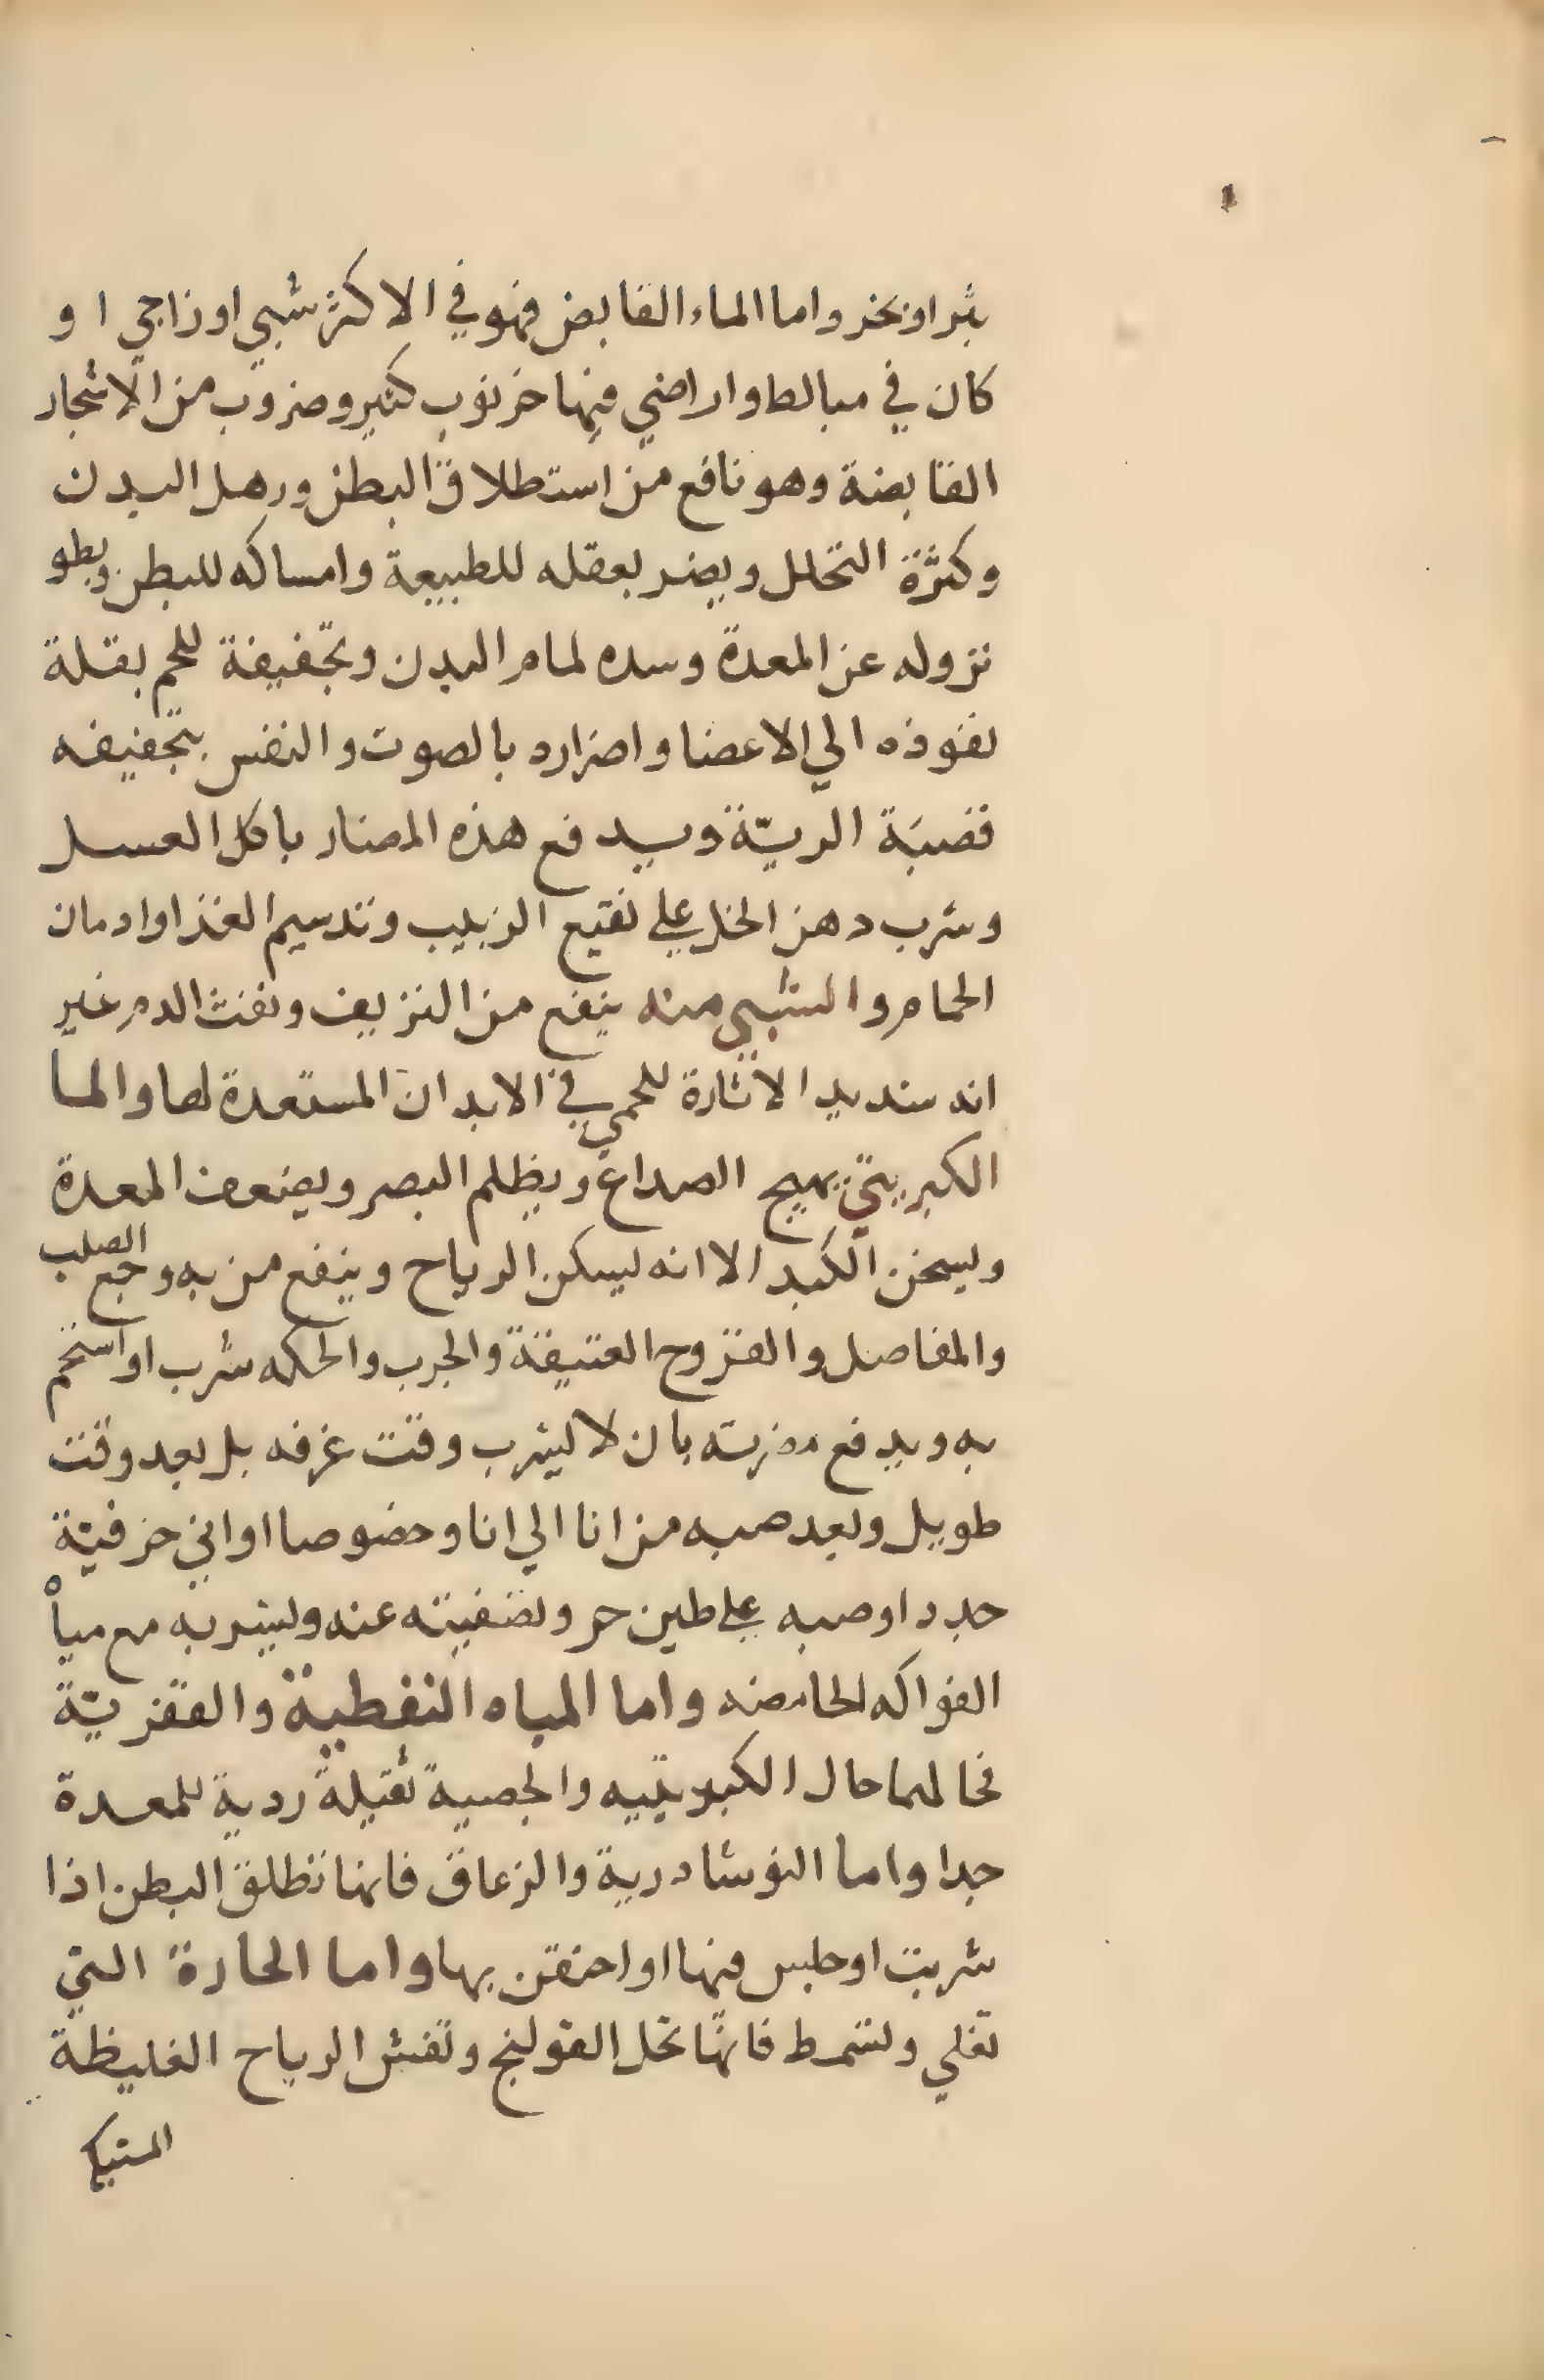 بثر اوبخر واما الماء القابض فهو في الاكثر شبي او زاجي ا و
كان في مبالط واراضي فيها خرنوب كثير وضروب من الاشجار
القابضة وهو نافع من استطلاق البطن ورهل البدن
وكثرة التخلل ويضر بعقله للطبيعة وامساكه للبطن وبطو
نزوله عن المعدة وسده لمسام البدن وتجفيفة للحم بقلة
نفوذه الي الاعضا واضراره بالصوت والنفس بتجفيفه
قصبَة الريّة ويد فع هذه المضار باكل العسل
وشرب دهن الخل علي نقيع الزبيب وتدسيم الغذا وادمان
الحمام والشبي منه ينفع من النزيف ونفث الدم غير
انه شديد الاثارة للحمي في الابدان المستعدة لها والما
الكبريتي يهيج الصداع ويظلم البصر ويضعف المعدة
ويسخن الكبد الا انه يسكن الرياح وينفع من به وجع الصلب
والمفاصل والقروح العتيقة والجرب والحكه شرب او استحم
به ويدفع مضرته بان لا يشرب وقت غرفه بل بعد وقت
طويل وبعد صبه من انا الي انا وخصوصا اواني خزفيّة
جدد او صبه علي طين حر وتصفيته عنه ويشربه مع مياْه
الفواكه الحامضه واما المياه النفطية والقفزيّة
فحالهما حال الكبريتيه والجصية ثقيلة ردية للمعدة
جدا واما النوشادرية والزعاق فانها تطلق البطن اذا
شربت او جلس فيها او احتقن بها واما الحارة التي
تغلي وتشمط فانها تحل القولنج وتفش الرياح الغليظة